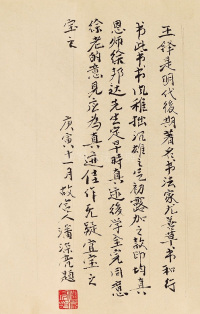 王铎是明代後期著名书法家尤善草书和行
书此书书风稚拙沉雄之气韵露加之款印均真
恩师徐邦达先生定早时真迹後学全完同意
徐老的意见应为真迹佳作无疑宜宝之
宝之
庚寅十一月故宫人潘深亮题